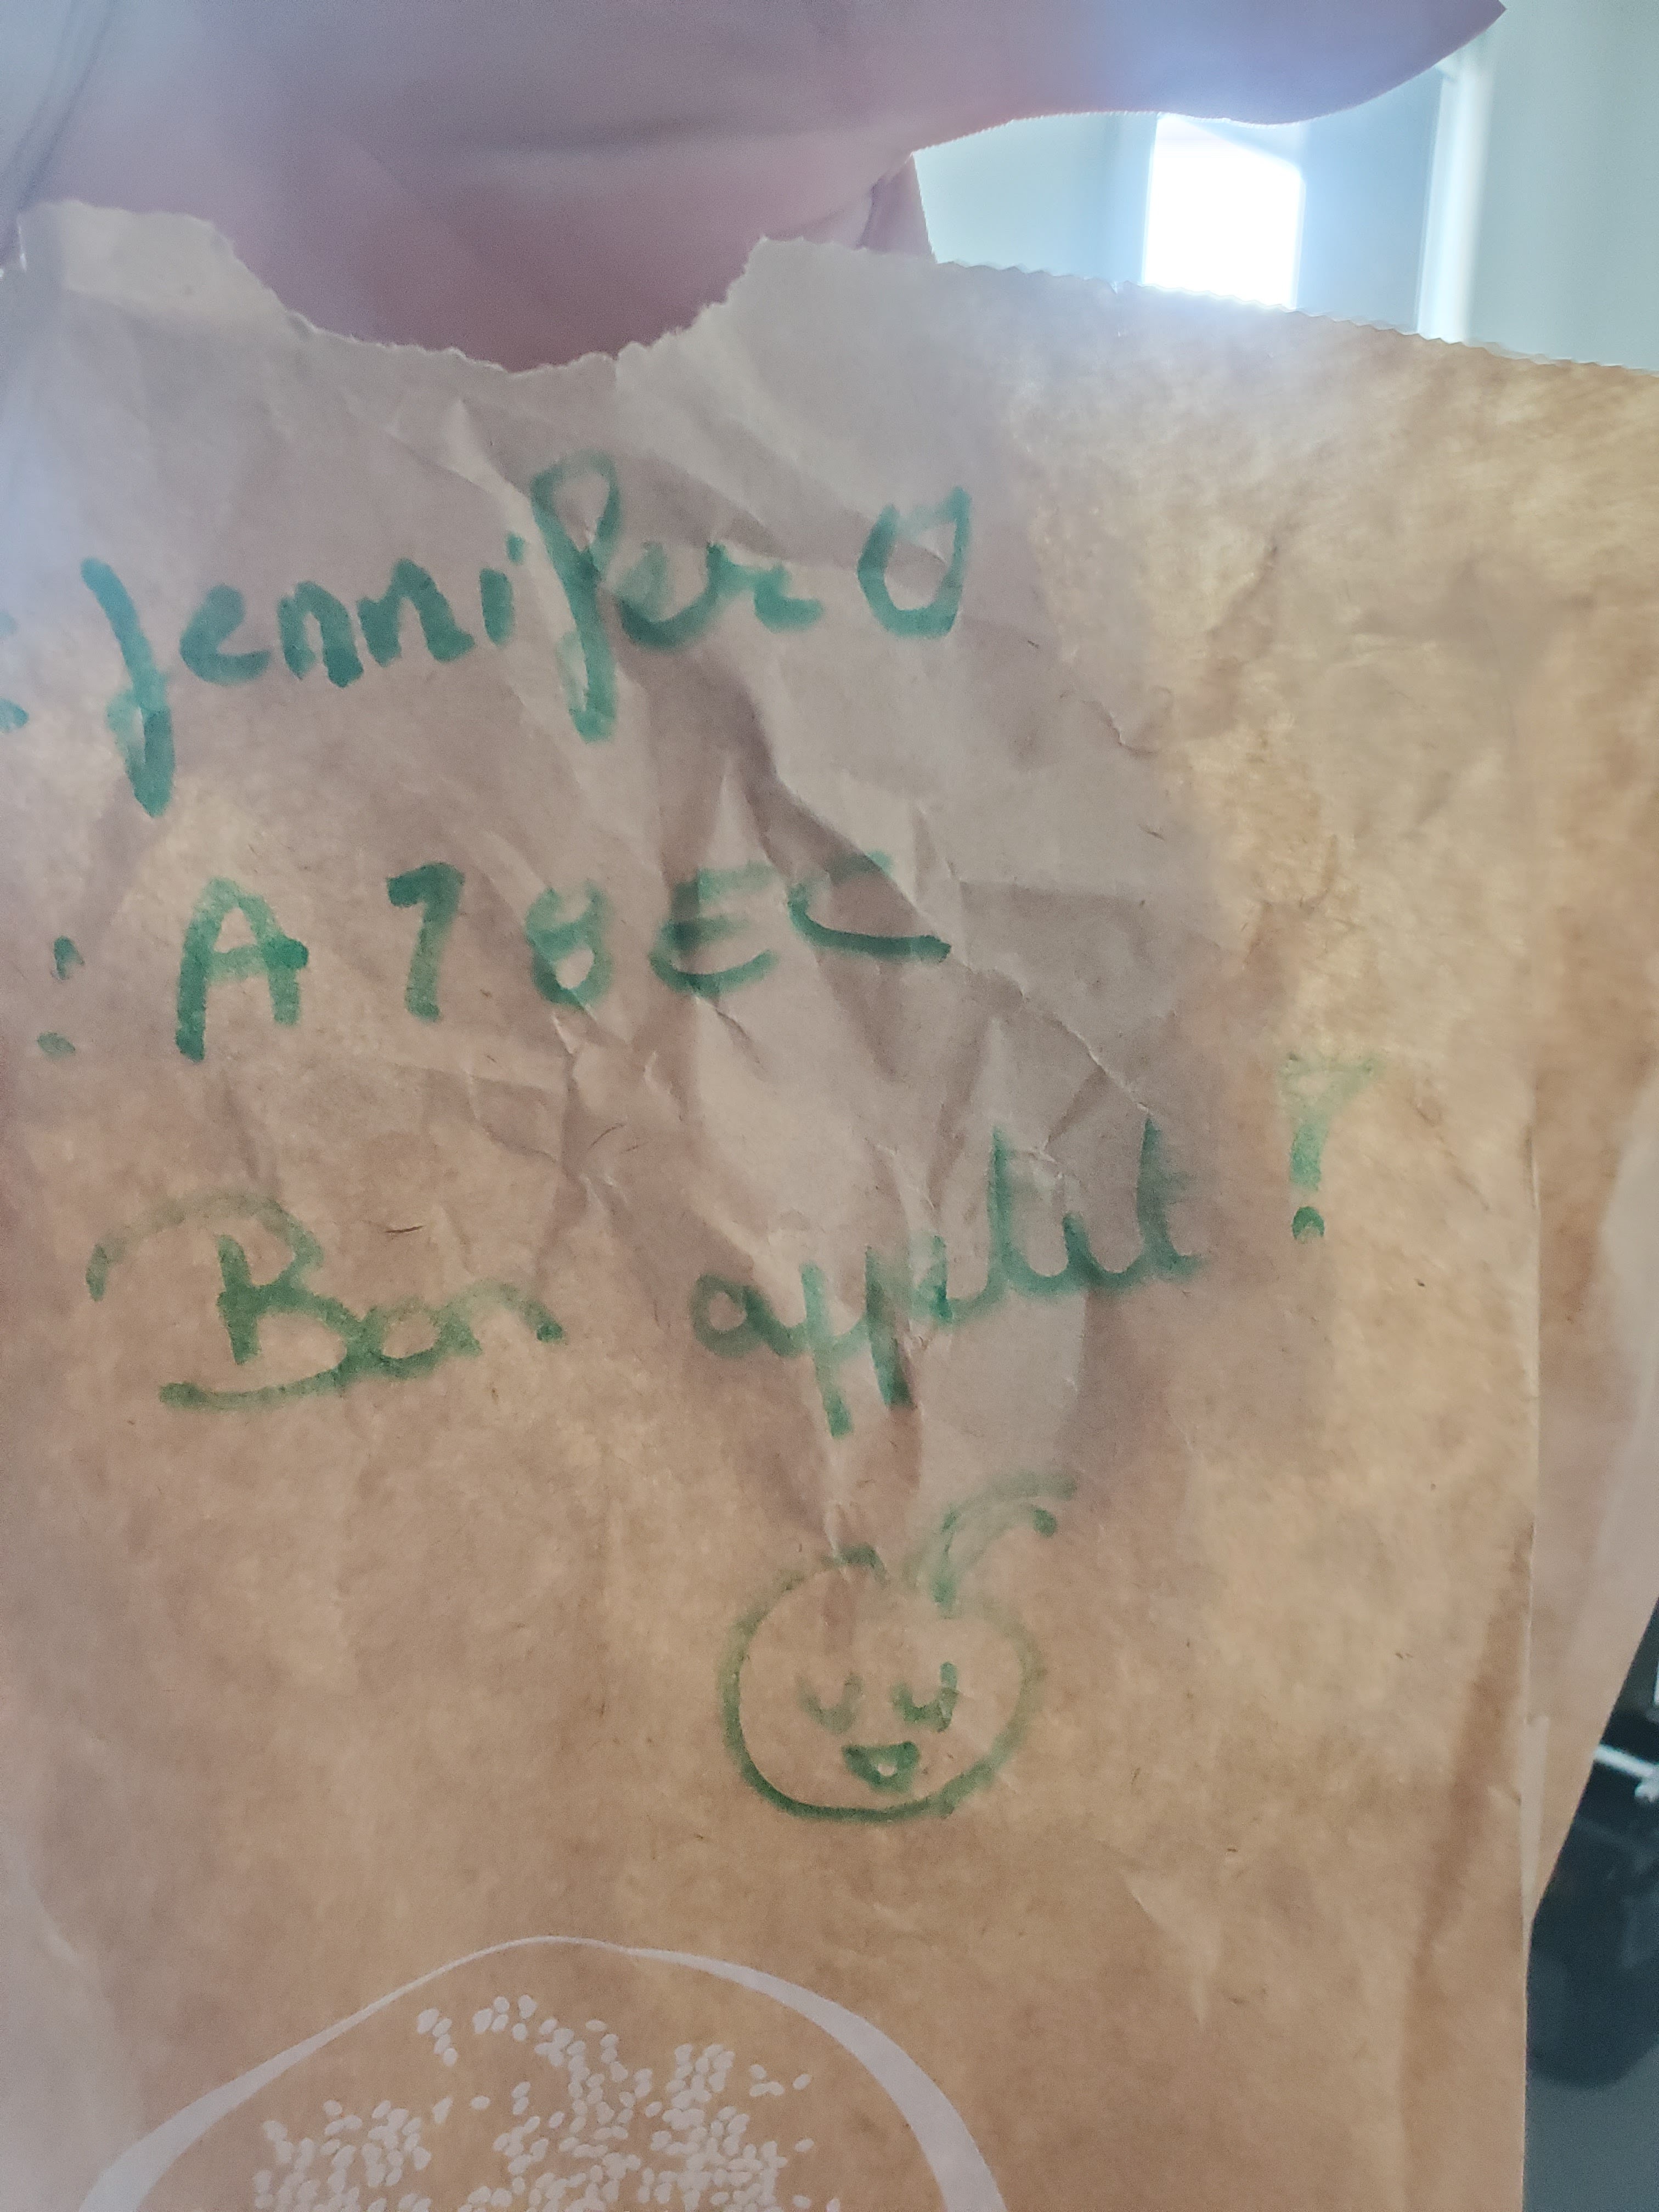 : Jennifer O
: A78EC
Bon appétit !